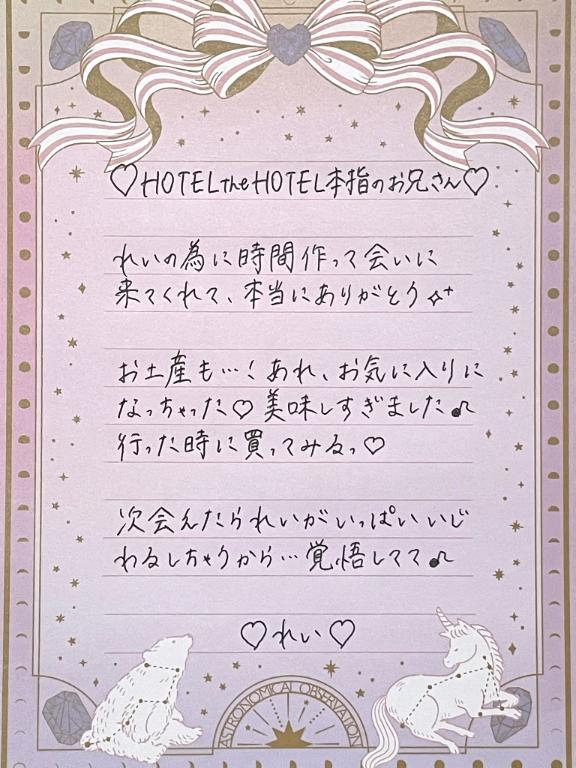 ♡HOTELtheHOTEL本指のお兄さん♡
れいの為に時間作って会いに
来てくれて、本当にありがとう✧⁺
お土産も…！あれ、お気に入りに
なっちゃった♡美味しすぎました♪
行った時に買ってみるっ♡
次会えたられいがいっぱいいじ
わるしちゃうから…覚悟してて♪
♡れい♡
ASTRONOMICAL OBSERVATION